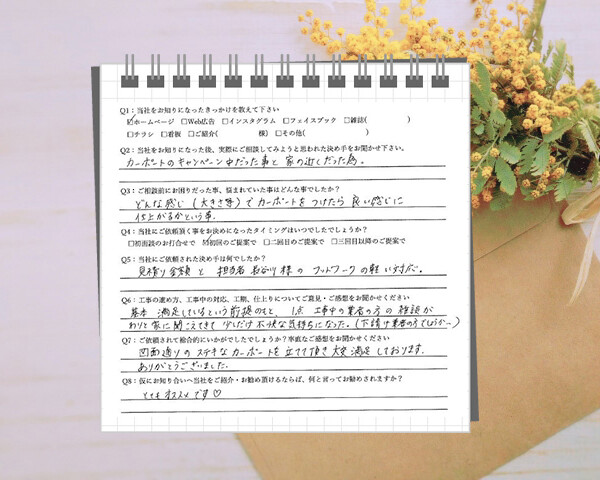 Q1：当社をお知りになったきっかけを教えて下さい
☑ホームページ □Web広告 □インスタグラム □フェイスブック □雑誌( )
□チラシ □看板 □ご紹介( 様) □その他( )
Q2：当社をお知りになった後、実際にご相談してみようと思われた決め手をお聞かせ下さい。
カーポートのキャンペーン中だった事と 家の近くだった為。
Q3：ご相談前にお困りだった事、悩まれていた事はどんな事でしたか？
どんな感じ(大きさ等)でカーポートをつけたら 良い感じに
仕上がるかという事.
Q4：当社にご依頼頂く事をお決めになったタイミングはいつでしたでしょうか？
□初面談のお打合せで ☑初回のご提案で □二回目のご提案で □三回目以降のご提案で
Q5：当社にご依頼された決め手は何でしたか？
見積り金額と 担当者 長谷川様の フットワークの軽い対応。
Q6：工事の進め方、工事中の対応、工期、仕上りについてご意見・ご感想をお聞かせください
基本 満足しているという前提のもと、1点 工事中の業者の方の雑談が
わりと家に聞こえてきて 少しだけ不快な気持ちになった。(下請け業者の方でしょうか～)
Q7：ご依頼されて総合的にいかがでしたでしょうか？率直なご感想をお聞かせください
図面通りの ステキな カーポートを 立てて頂き 大変 満足しております.
ありがとうございました.
Q8：仮にお知り合いへ当社をご紹介・お勧め頂けるならば、何と言ってお勧めされますか？
とても オススメ です♡